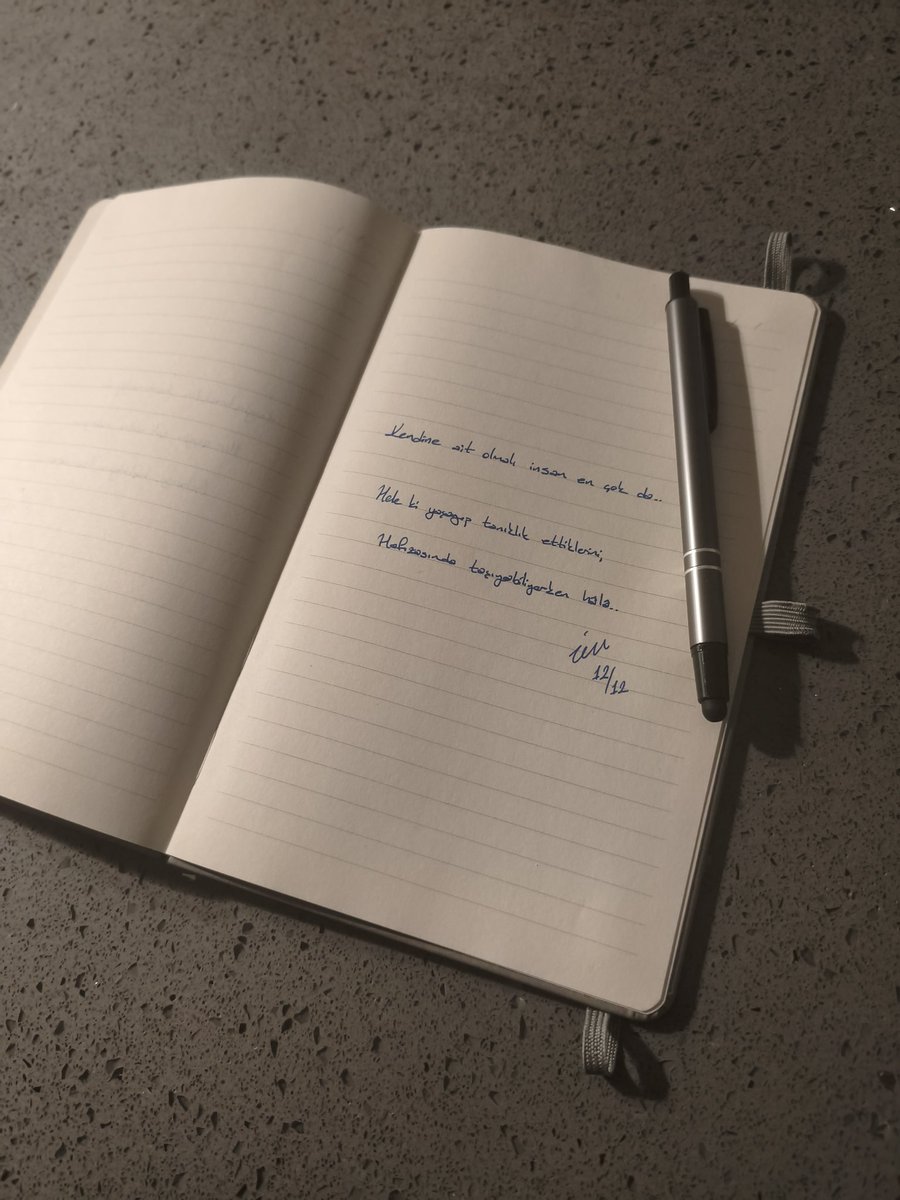 Kendine ait olmalı insan en çok da..
Hele ki yaşayıp tanıklık ettiklerini,
Hafızasında taşıyabiliyorken hala..
12/12